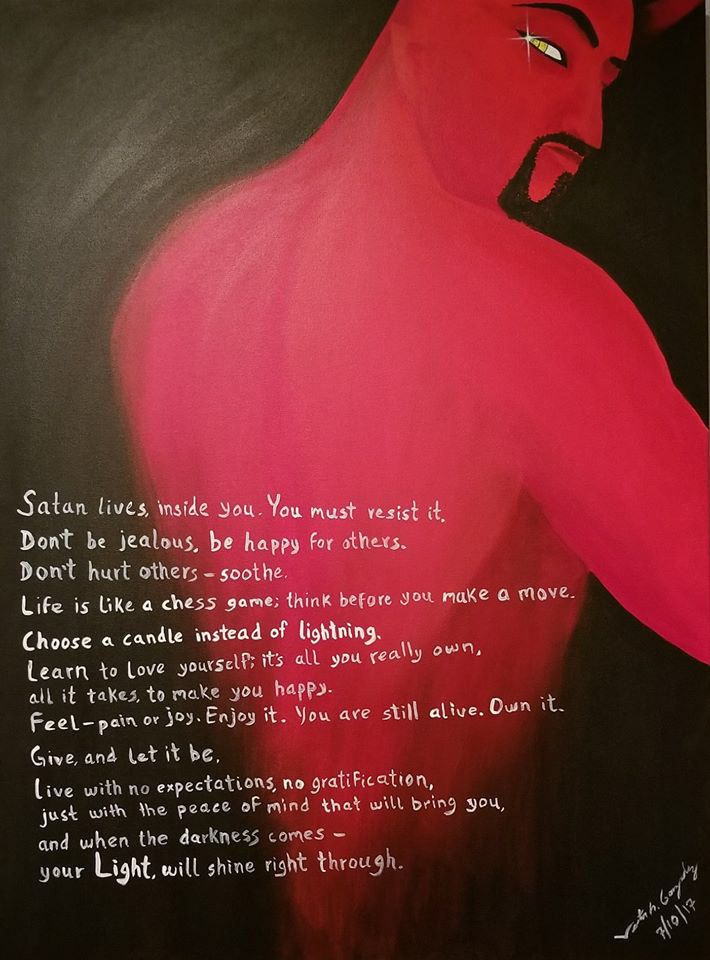 Satan lives, inside you. You must resist it.
Don't be jealous, be happy for others.
Don't hurt others - soothe.
Life is like a chess game; think before you make a move.
Choose a candle instead of lightning.
Learn to love yourself; it's all you really own,
all it takes, to make you happy.
Feel - pain or joy. Enjoy it. You are still alive. Own it.
Give, and let it be.
Live with no expectations, no gratification,
just with the peace of mind that will bring you,
and when the darkness comes -
your Light, will shine right through.
7/10/17